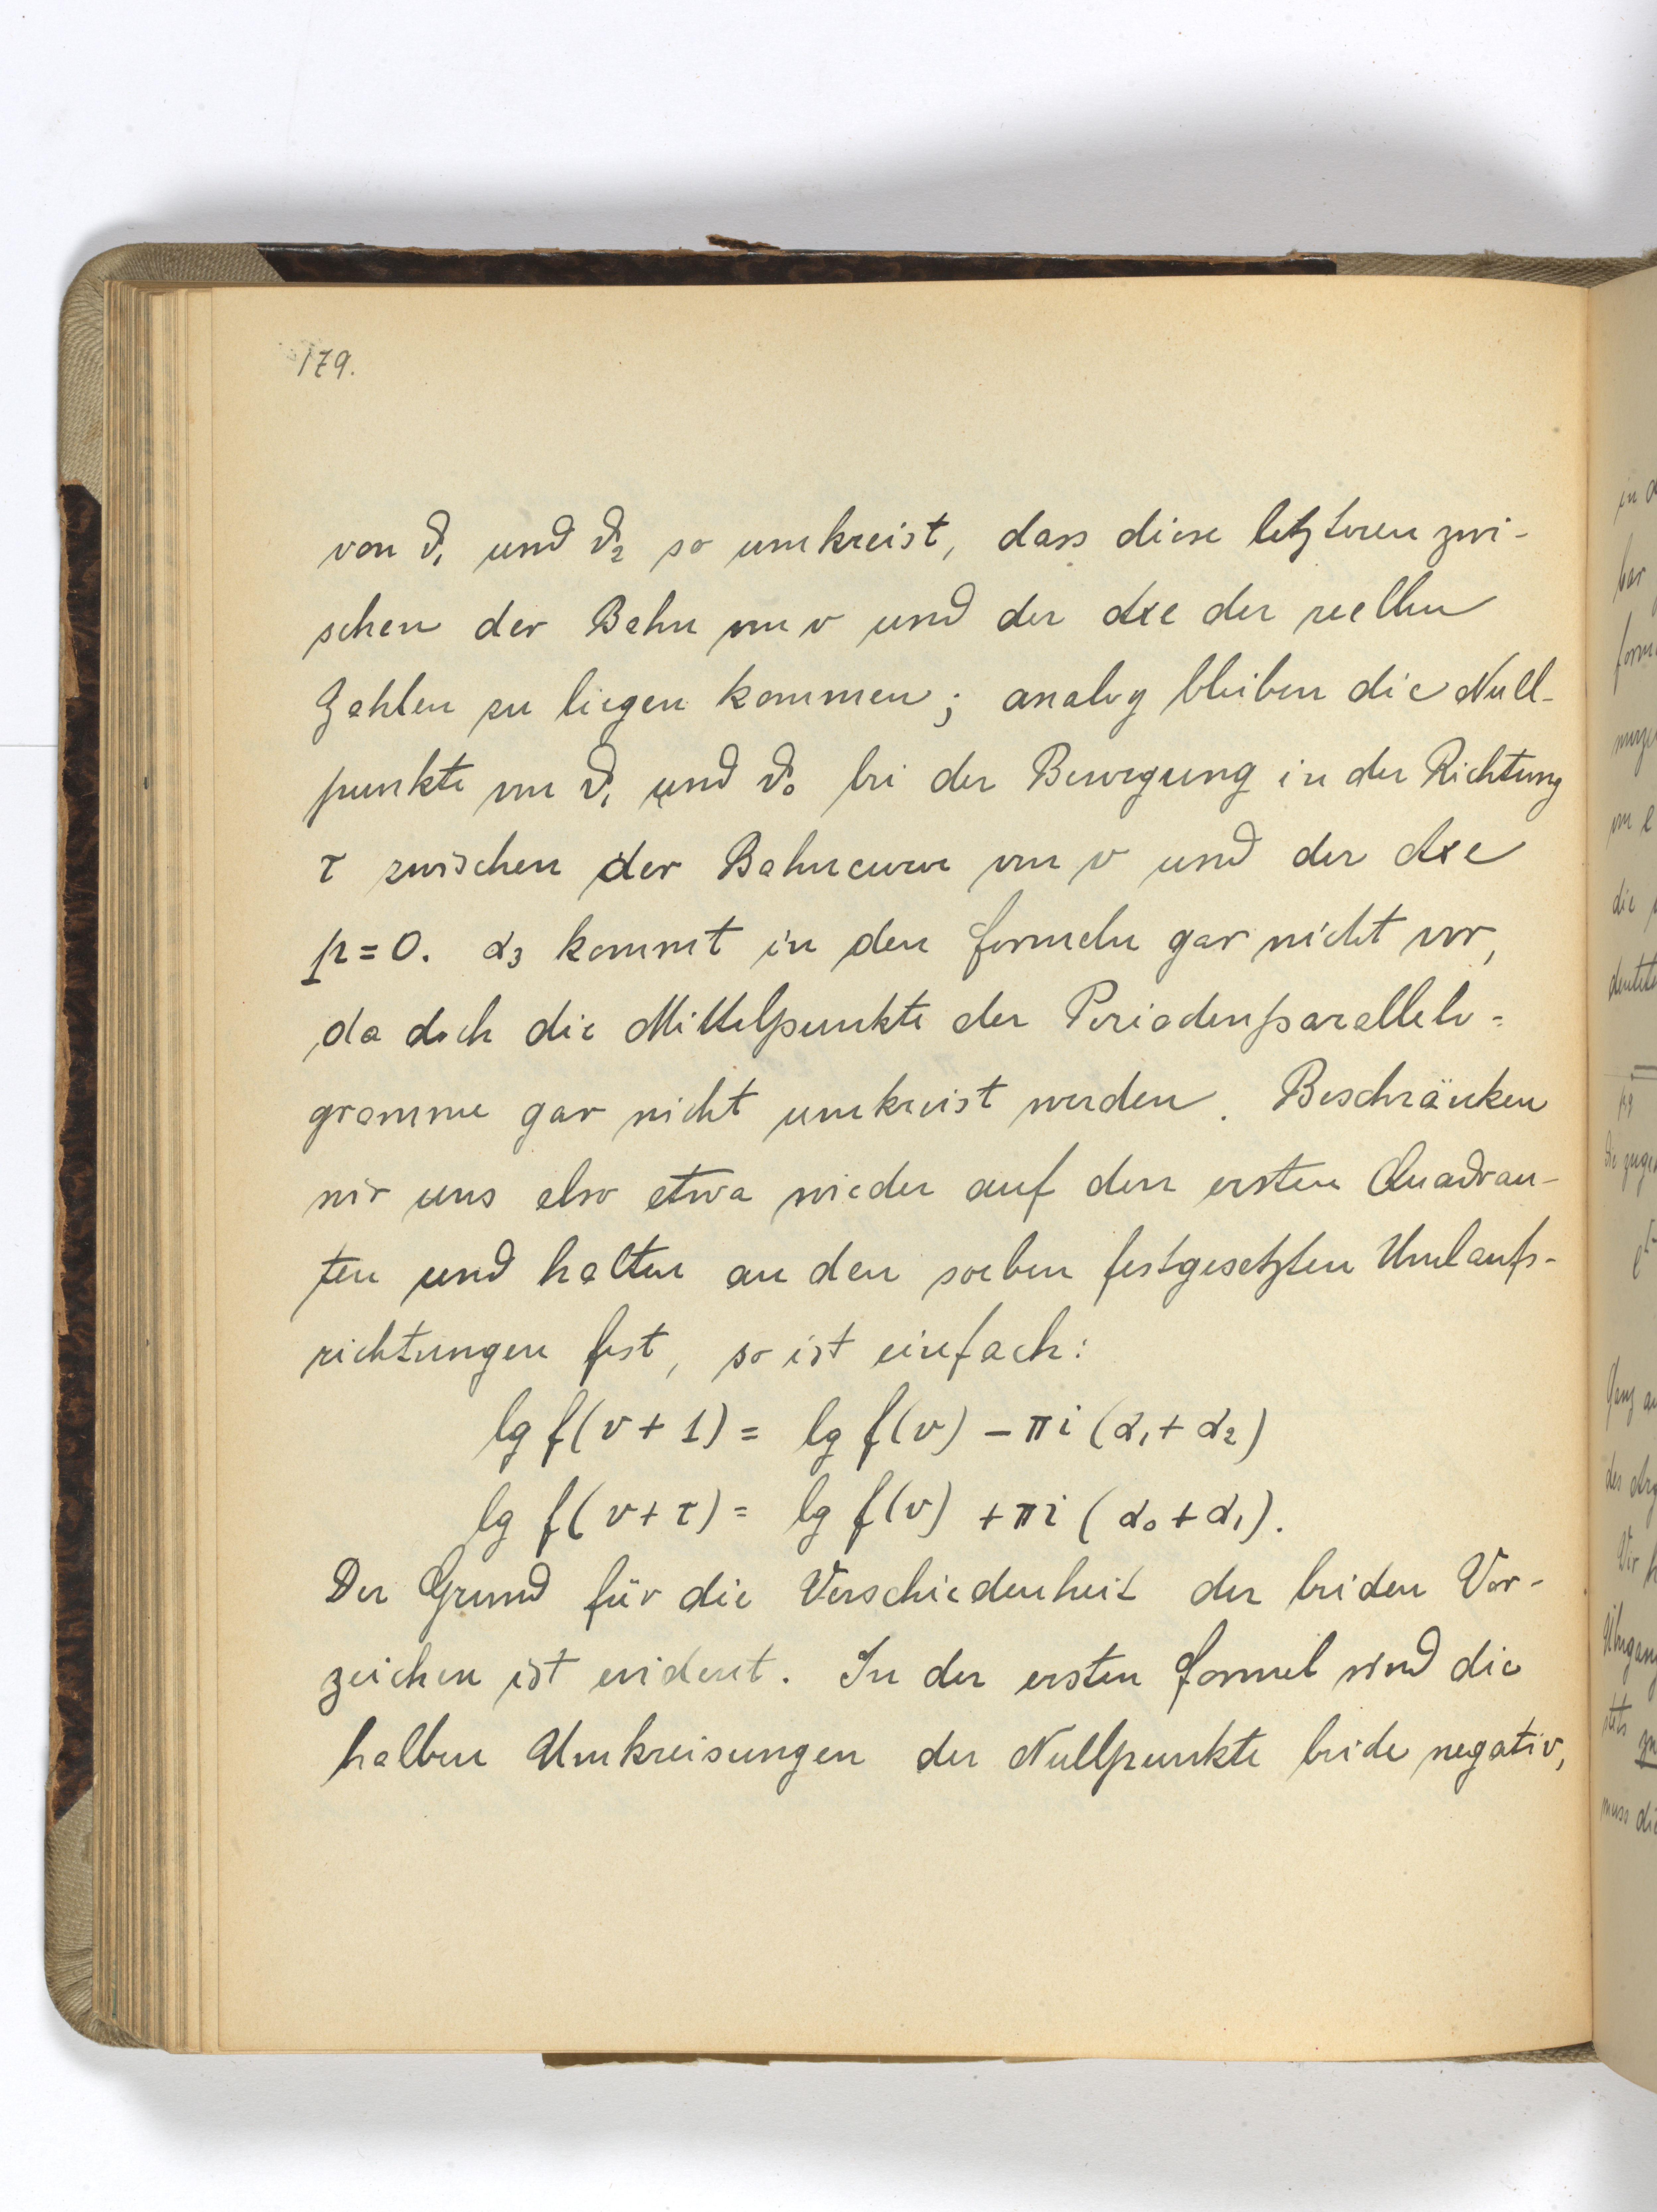 179.
von ϑ₁ und ϑ₂ so umkreist, dass diese letzteren zwi-
schen der Bahn von v und der Axe der reellen
Zahlen zu liegen kommen; analog bleiben die Null-
punkte von ϑ₁ und ϑ₀ bei der Bewegung in der Richtung
τ zwischen der Bahncurve von v und der Axe
p=0. α₃ kommt in den Formeln gar nicht vor,
da doch die Mittelpunkte der Periodenparallelo=
gramme gar nicht umkreist werden. Beschränken
wir uns also etwa wieder auf den ersten Quadran-
ten und halten an den soeben festgesetzten Umlaufs-
richtungen fest, so ist einfach:
lg f(v+1) = lg f(v) - πi (α₁+α₂)
lg f(v+τ) = lg f(v) + πi (α₀+α₁).
Der Grund für die Verschiedenheit der beiden Vor-
zeichen ist evident. In der ersten Formel sind die
halben Umkreisungen der Nullpunkte beide negativ,